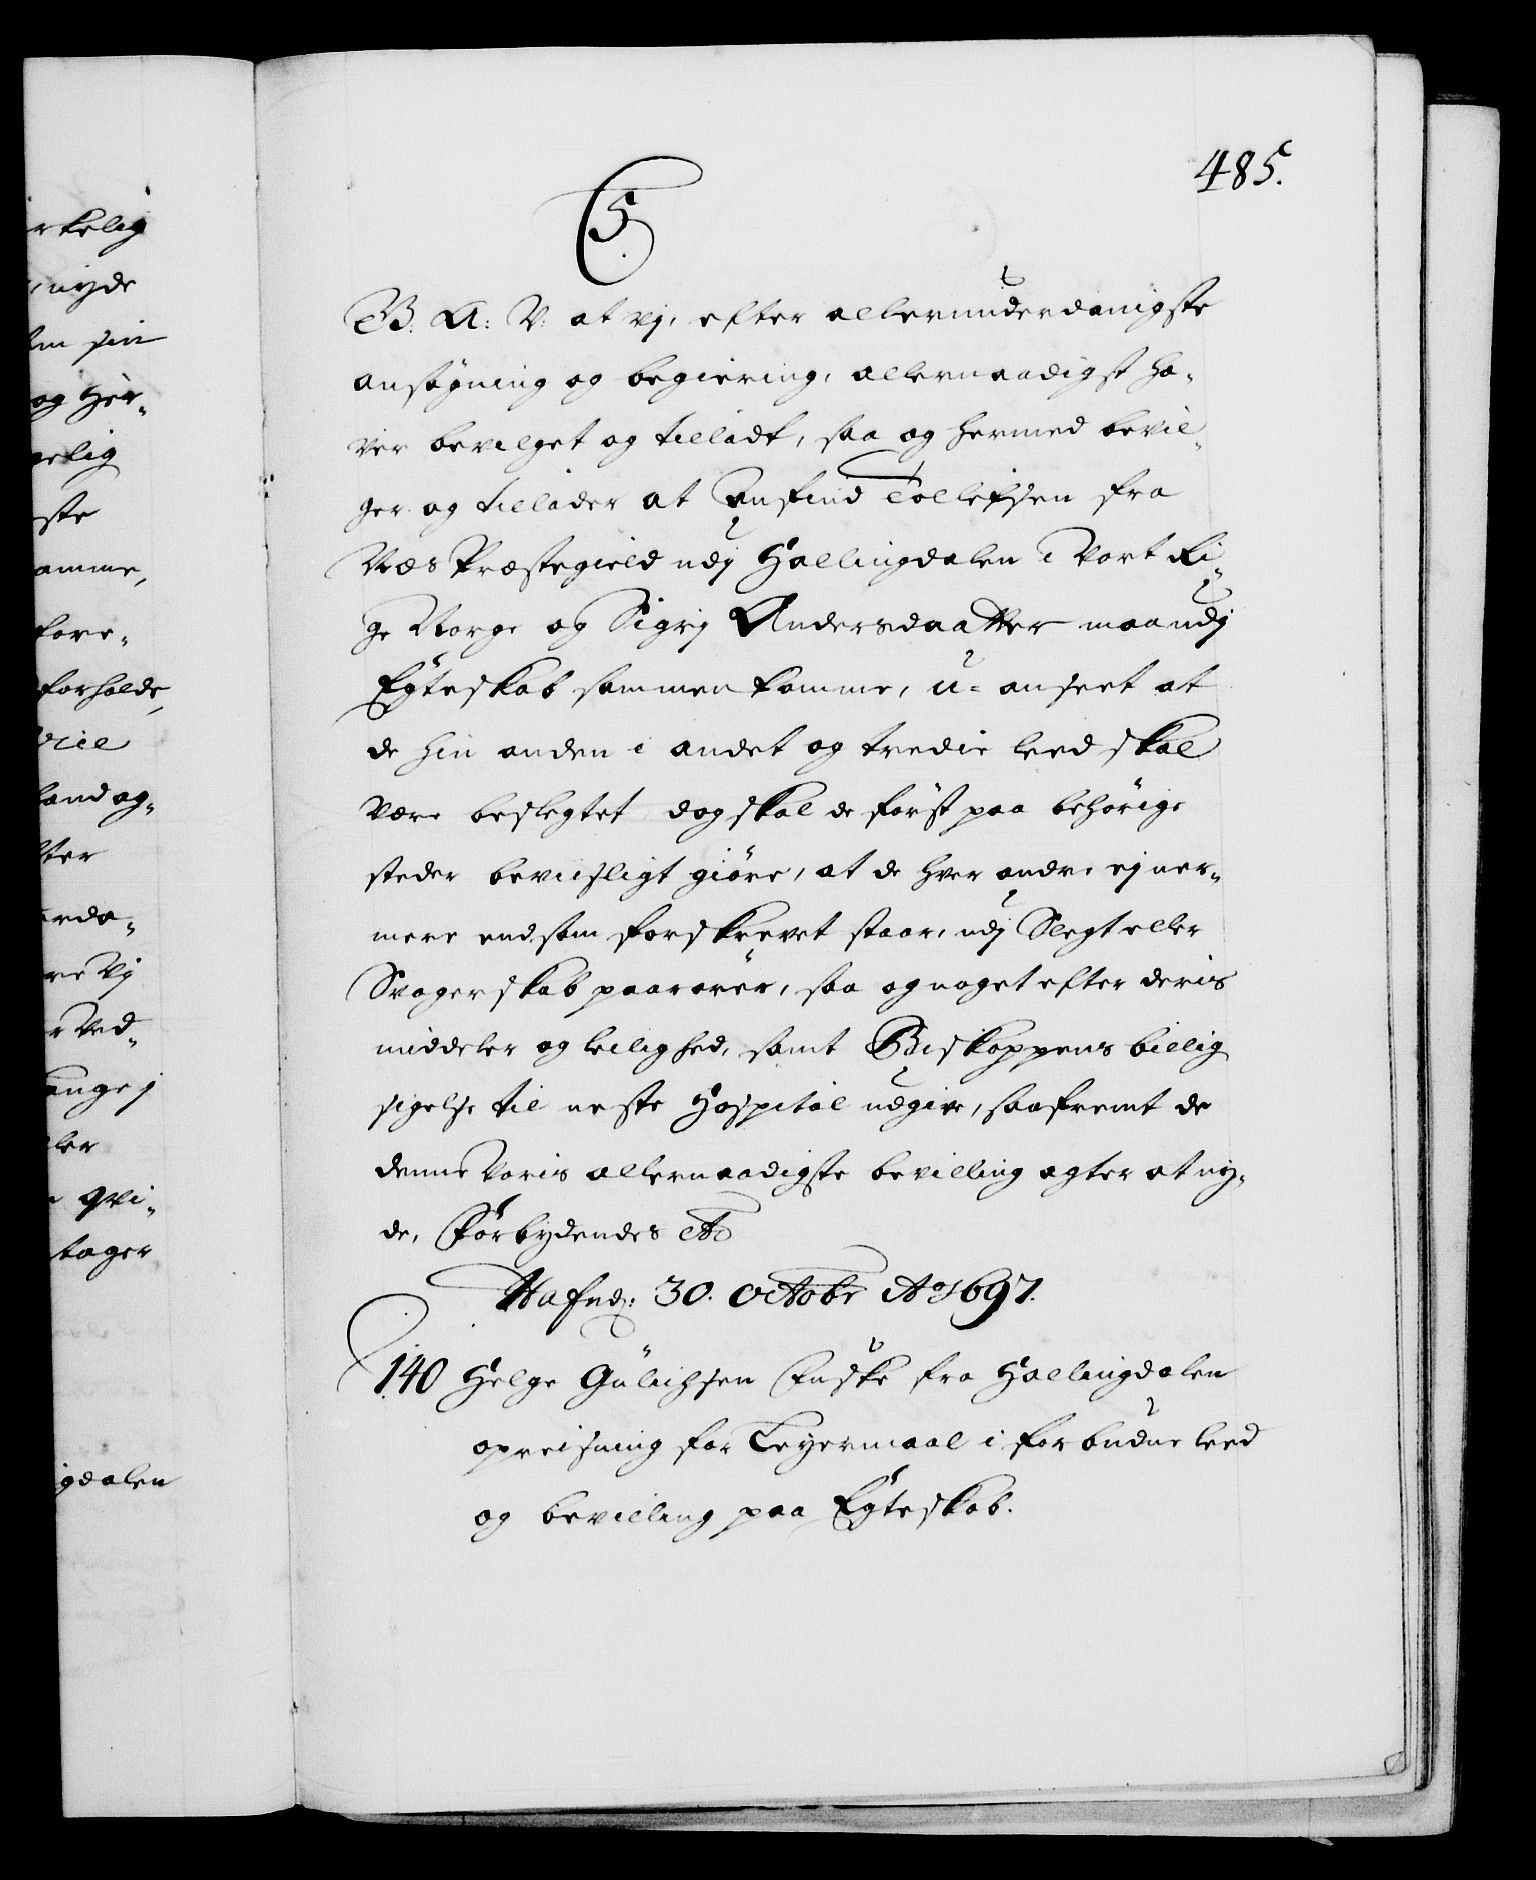 485.
C5.
G. A: V: at vj, efter allerunderdanigste
ansøgning og begiering, allernaadigst ha-
ver bevilget og tilladt, saa og hermed bevil-
ger og tillader at Anfind Tollefsen fra
Næs Præstegield udj Hallingdalen i Vort Ri-
ge Norge og Sigrj Andersdaatter maa udj
Egteskab sammenkomme, u-anseet at
de hin anden i andet og tredie leed skal
være beslegtet dog skal de først paa behørige
steder beviisligt giøre, at de hver andre ej ner-
mere end som forskrevet staar, udj Slegt eller
Svogerskab paarører, saa og noget efter deris
middeler og leilighed, samt Biskoppens billig
sigelse til neste Hospital udgive, saafremt de
denne Voris allernaadigste bevilling agter at ny-
de, Forbydendes etc
Hafnæ: 30. octobr Ao 1697.
140 Helge Gulichsen Enske fra Hallingdalen
opreisning for Leyermaal i forbudne leed
og bevilling paa Egteskab.
rkelig
nyde
sin
og Her-
gelig
ste
amme,
fore-
forholde,
vill
land og-
ter
erda-
re Vj
r Ved-
ange j
ler
qvi-
tager
gdalen